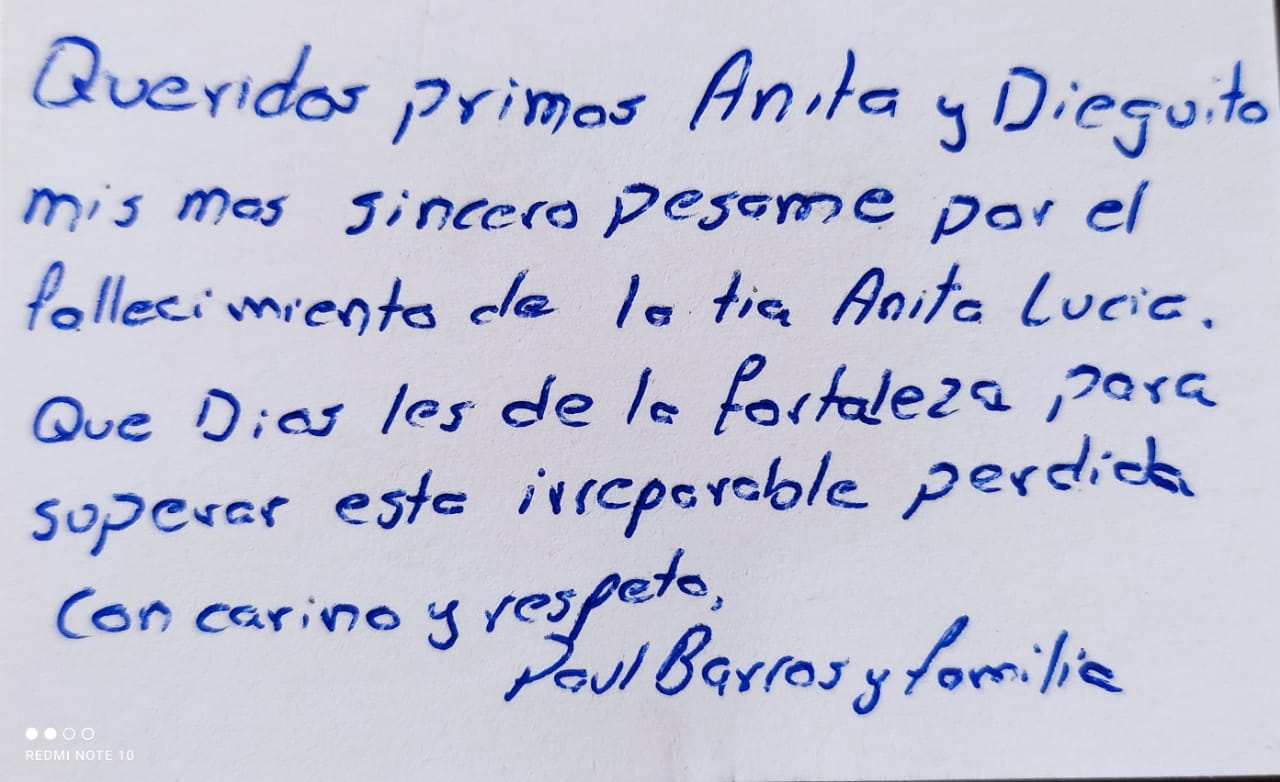 Queridos primos Anita y Dieguito
mis mas sincero pesame por el
fallecimiento de la tia Anita Lucia.
Que Dios les de la fortaleza para
superar esta irreparable perdida
Con carino y respeto,
Paul Barros y familia
REDMI NOTE 10